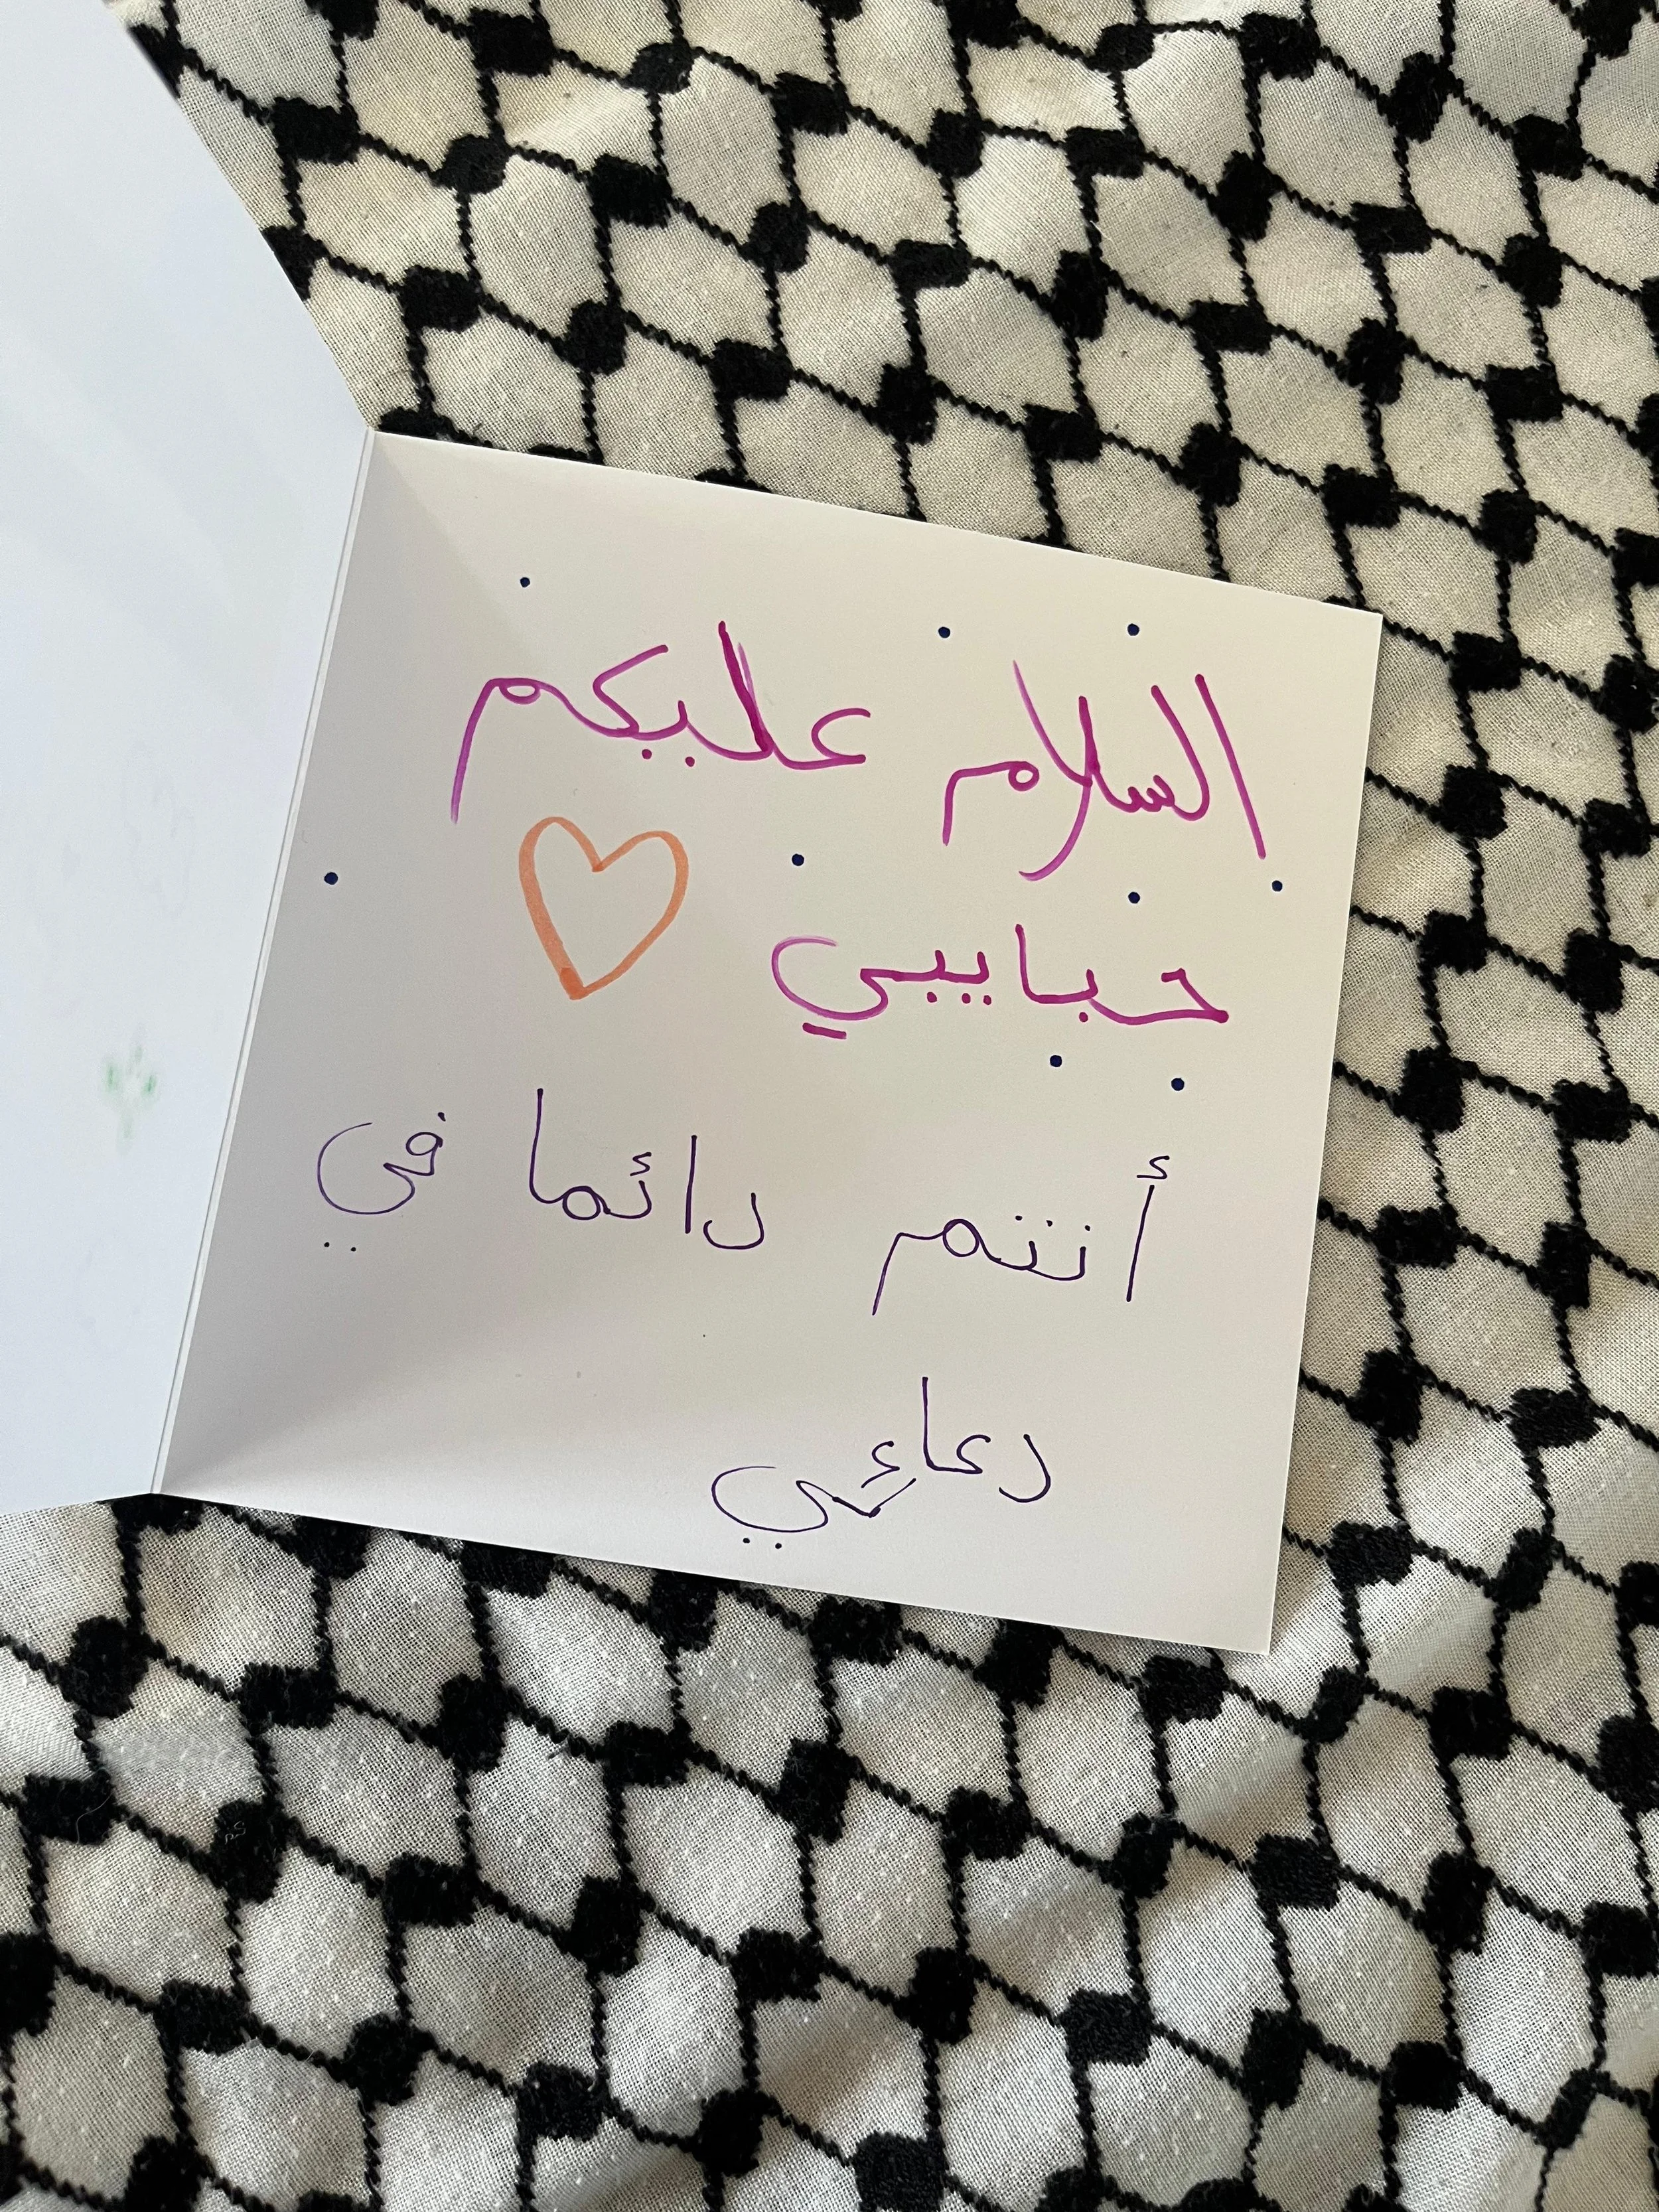 السلام عليكم
حبايبي
أنتم دائما في
دعائي